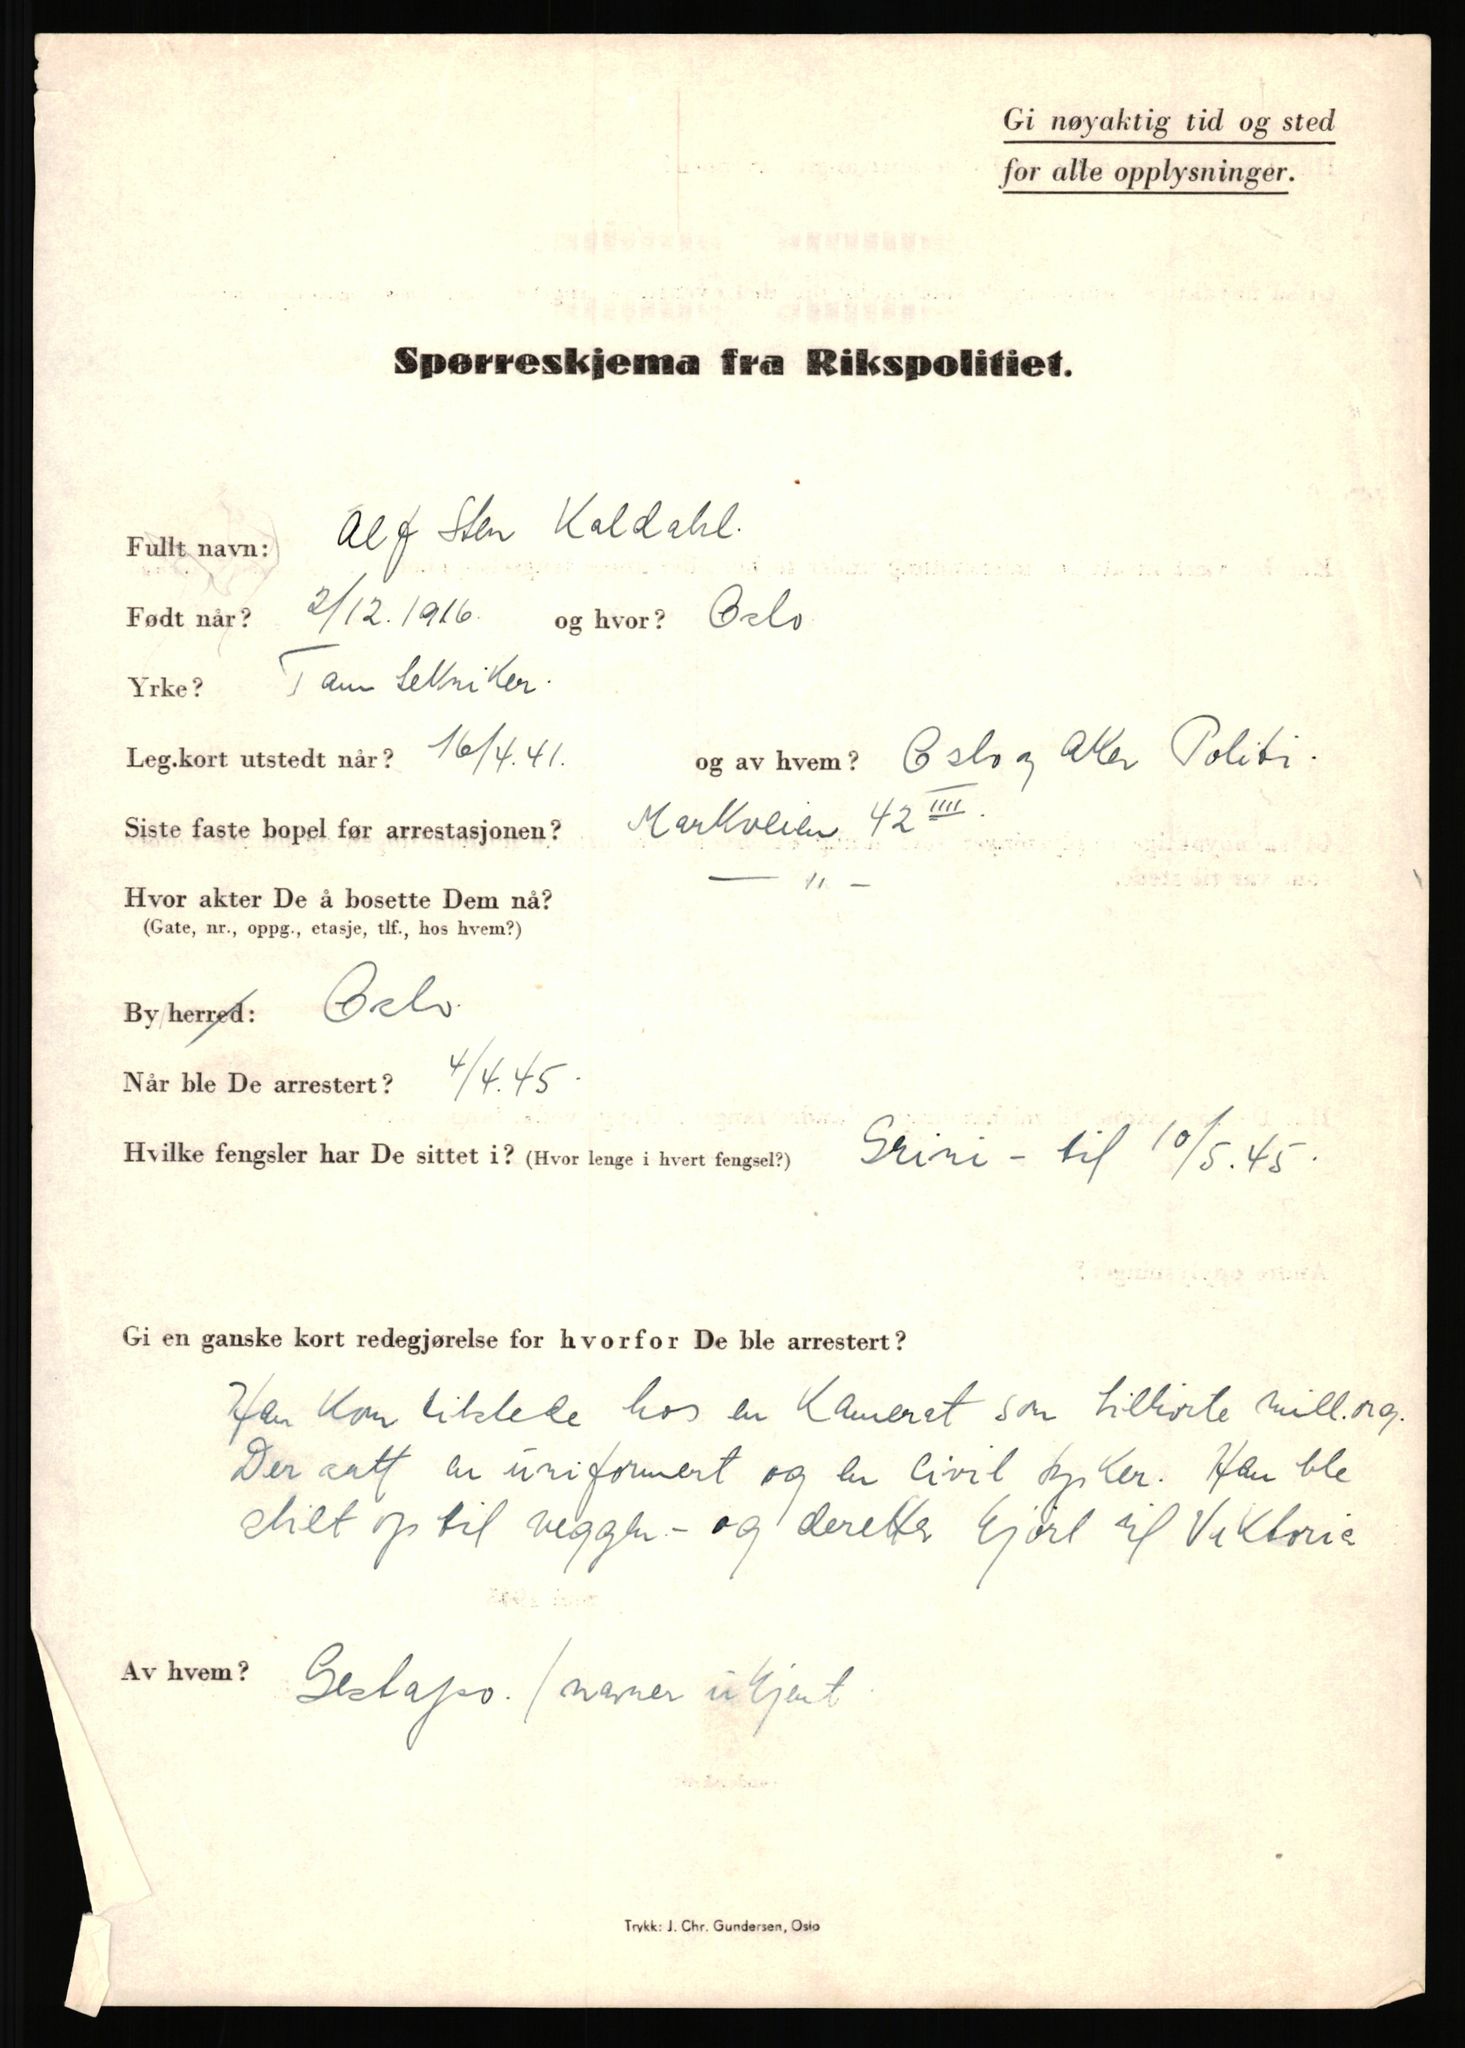 Gi nøyaktig tid og sted
for alle opplysninger.
Spørreskjema fra Rikspolitiet.
Fullt navn: Alf Sten Kaldahl.
Født når? 2/12.1916. og hvor? Oslo
Yrke? Tanntekniker.
Leg.kort utstedt når? 16/4.41. og av hvem? Oslo og Aker Politi.
Siste faste bopel før arrestasjonen? Markveien 42 IIII.
Hvor akter De å bosette Dem nå? — " —
(Gate, nr., oppg., etasje, tlf., hos hvem?)
By/herred: Oslo.
Når ble De arrestert? 4/4.45.
Hvilke fengsler har De sittet i? (Hvor lenge i hvert fengsel?) Grini - til 10/5.45.
Gi en ganske kort redegjørelse for hvorfor De ble arrestert?
Han kom tilstede hos en kamerat som tilhørte mill.org.
Der satt en uniformert og en civil tysker. Han ble
stilt op til veggen - og deretter kjørt til Viktoria
Av hvem? Gestapo. / navner ukjent
Trykk: J. Chr. Gundersen, Oslo